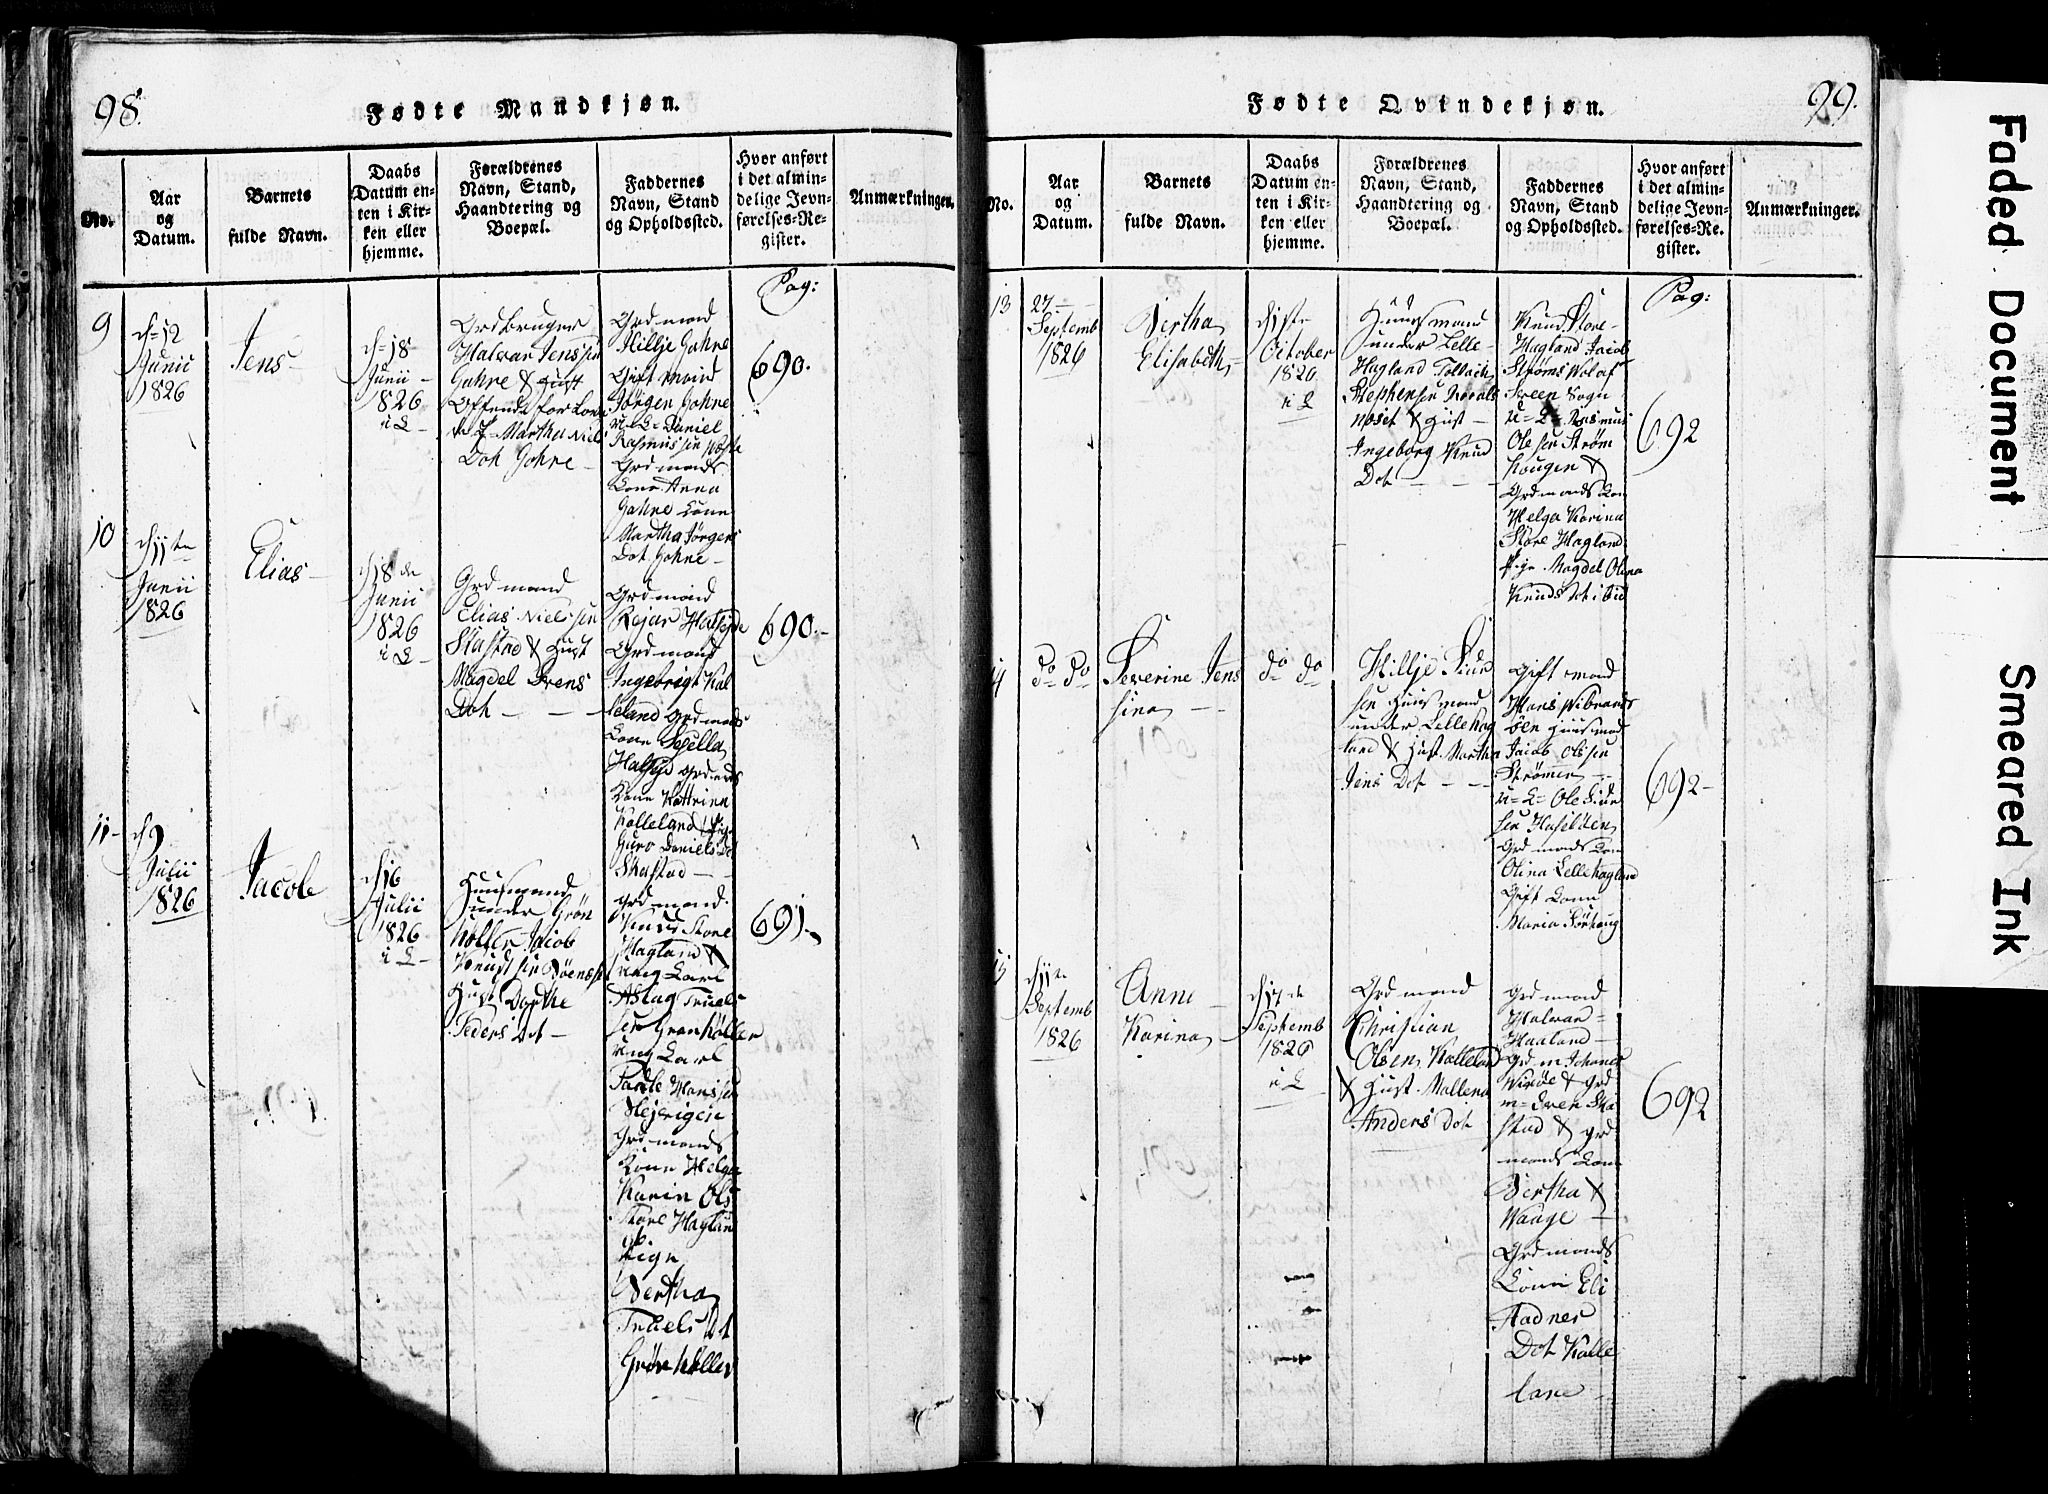 98.
Fødte Mandkjøn.
No.
Aar
og
Datum.
Barnets
fulde Navn.
Daabs
Datum en-
ten i Kir-
ken eller
hjemme.
Forældrenes
Navn, Stand,
Haandtering og
Boepæl.
Faddernes
Navn, Stand
og Opholdssted.
Hvor anført
i det almin-
delige Jevn-
førelses-Re-
gister.
Anmærkninger.
Pag:
9
d= 12
Junii
1826
Jens
d= 18
Junii
1826
i K
Grdbruger
Halvar Jenssen
Gahre & Hust
Martha Niels
Dot Gahre
Grdmand
Hillje Gahre
Gift Mand
Jørgen Gahre
u= K= Daniel
Rasmussen
Grdmands
Kone Anna
Gahre Kone
Martha Jørgens
Dot Gahre
690.
10
d 11te
Junii
1826
Elias
d 18de
Junii
1826
i K
Grdmand
Elias Nielssen
Skastad & Hust
Magdel Drens
Dot
Grdmand
Rejar
Grdmand
Ingebrigt Kal
leland Grdmands
Kone
Kone Kattrina
Kalleland
Guro Daniels Dot
Skastad
690.
11
d 9
Julii
1826
Jacob
d 16
Julii
1826
i K
Huusmand
under Grøn
Jacob
Knudsen
Hust Dorthe
Peders Dot
Grdmand
Knud Store
Hagland &
ung Karl
Aslag Truels
sen
ung Karl
Hanssen
Grdmands
Kone Helga
Karin Ols
Store Haglan
Pige
Bertha
Truels Dt
691.
99.
Fødte Qvindekjøn.
No.
Aar
og
Datum.
Barnets
fulde Navn.
Daabs
Datum en-
ten i Kir-
ken eller
hjemme.
Forældrenes
Navn, Stand,
Haandtering og
Boepæl.
Faddernes
Navn, Stand
og Opholdssted.
Hvor anført
i det almin-
delige Jevn-
førelses-Re-
gister.
Anmærkninger.
Pag:
13
27
Septemb
1826
Bertha
Elisabeth
d 1ste
October
1826
i K
Huusmand
under Lelle
Hagland Tollach
Stephensen
& Hust
Ingeborg Knud
Dot
Knud Store
Hagland Jacob
Strøms
Sveen Sogn
u= K= Rasmus
Olesen Strøm
Hougen &
Grdmands Kon
Helga Karina
Store Hagland
Pige Magdel Olena
Knuds Dot ibid
692
14
do do
Severine Jens
sina
do do
Hillje
sen Huusmand
under Lellehag
land & Hust Martha
Jens Dot
Gift Mand
Hans Wibrands
øen Huusmand
Jacob Olssen
Strømen
u= K= Ole
sen Hasseløen
Grdmands Kon
Olina Lellehagland
Gift Kone
Maria Sørhaug
692
15
d 11te
Septemb
1826
Anne
Karina
d 17de
Septemb
1826
i K
Grdmand
Christian
Olsen Kalleland
& Hust Mallena
Anders Dot
Grdmand
Halvar
Hagland
Grdm Johanes
& Grd
m= Sveen Ska
stad & Grd
mands Kone
Bertha
Waage
Grdmands
Kone Eli
Aadnes
Dot Kalle
land
692
Faded Document
Smeared Ink